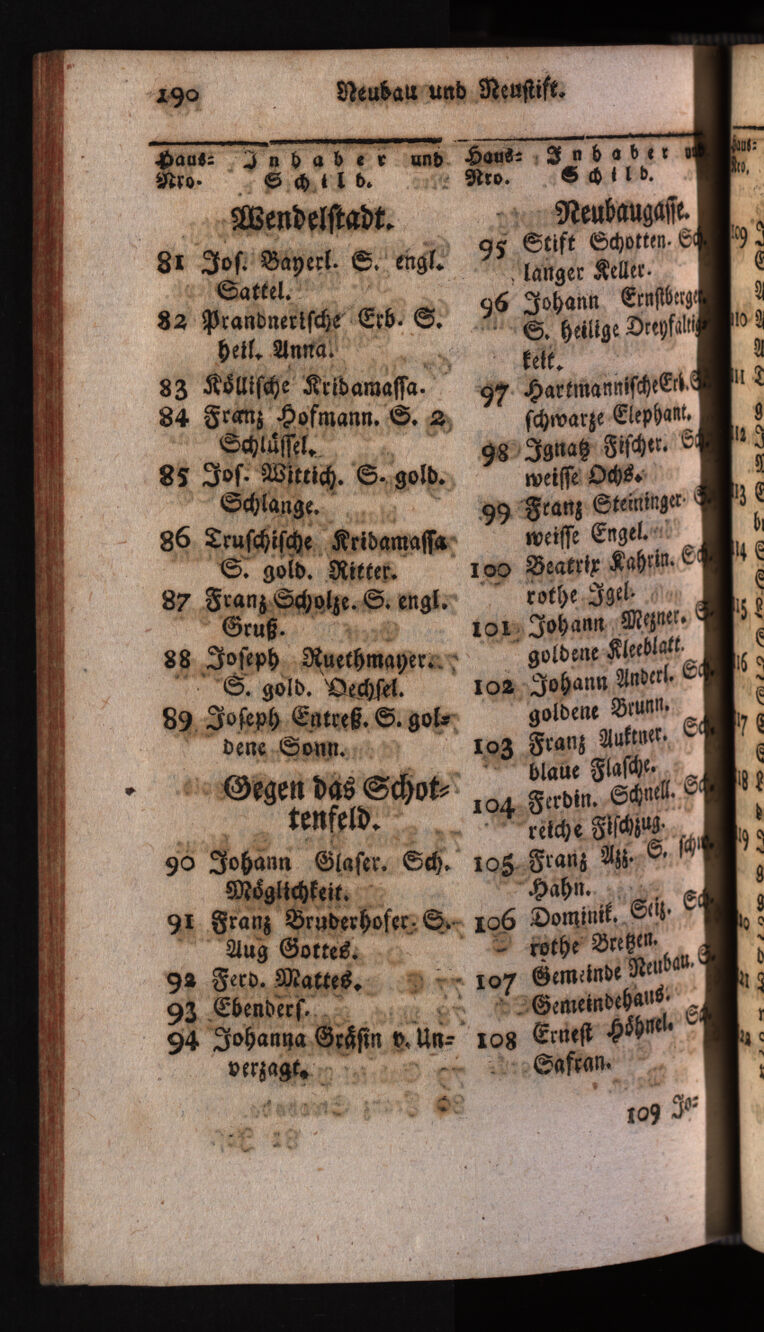 190 Neubau und Neustift.
Haus= Inhaber und
Nro. Schild.
Wendelstadt.
81 Jos. Bayerl. S. engl.
Sattel.
82 Prandnerische Erb. S.
heil. Anna.
83 Köllische Kridamassa.
84 Franz Hofmann. S. 2
Schlüssel.
85 Jos. Wittich. S. gold.
Schlange.
86 Truschische Kridamassa
S. gold. Ritter.
87 Franz Scholze. S. engl.
Gruß.
88 Joseph Ruethmayer.
S. gold. Oechsel.
89 Joseph Entreß. S. gol=
dene Sonn.
Gegen das Schot=
tenfeld.
90 Johann Glaser. Sch.
Möglichkeit.
91 Franz Bruderhofer. S.
Aug Gottes.
92 Ferd. Mattes.
93 Ebenders.
94 Johanna Gräfin v. Un=
verzagt.
Haus= Inhaber
Nro. Schild.
Neubaugasse.
95 Stift Schotten.
langer Keller.
96 Johann Ernstberger
S. heilige Dreyfaltig
keit.
97 Hartmannische Erb. S
schwarze Elephant.
98 Ignatz Fischer.
weisse Ochs.
99 Franz Steininger
weisse Engel.
100 Beatrix Kahrin.
rothe Igel.
101 Johann Mezner.
goldene Kleeblatt.
102 Johann Anderl.
goldene Brunn.
103 Franz Auktner.
blaue Flasche.
104 Ferdin. Schnell.
reiche Fischzug.
105 Franz Azz. S.
Hahn.
106 Dominik. Seiz.
rothe Bretzen.
107 Gemeinde Neubau.
Gemeindehaus.
108 Ernest Höhnel.
Safran.
109 Jo=